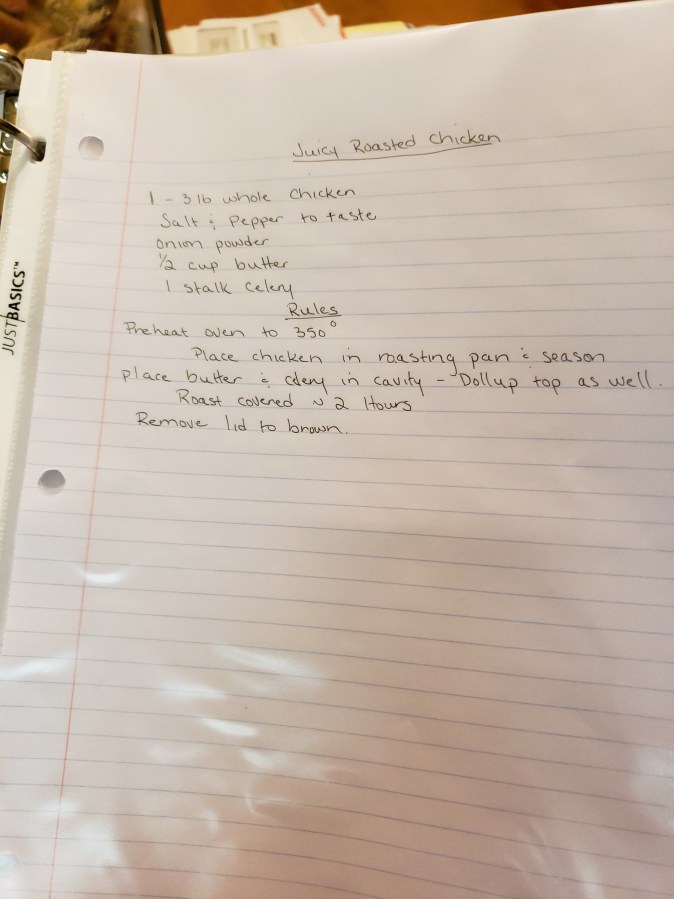 JUST BASICS™
Juicy Roasted Chicken
1 - 3 lb whole Chicken
Salt & Pepper to taste
Onion powder
1/2 cup butter
1 stalk Celery
Rules
Preheat oven to 350°
Place chicken in roasting pan & season
place butter & celery in cavity - Dollup top as well.
Roast covered ~ 2 Hours
Remove lid to brown.